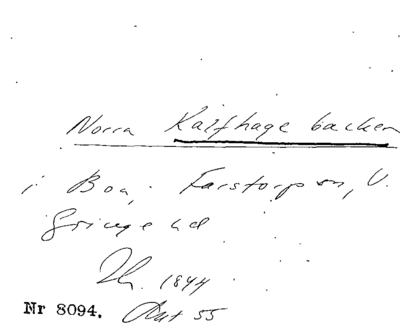 Norra Kalfhage backen
i Boa, Farstorps sn, V.
Göinge hd
1844
Nr 8094. Akt 55